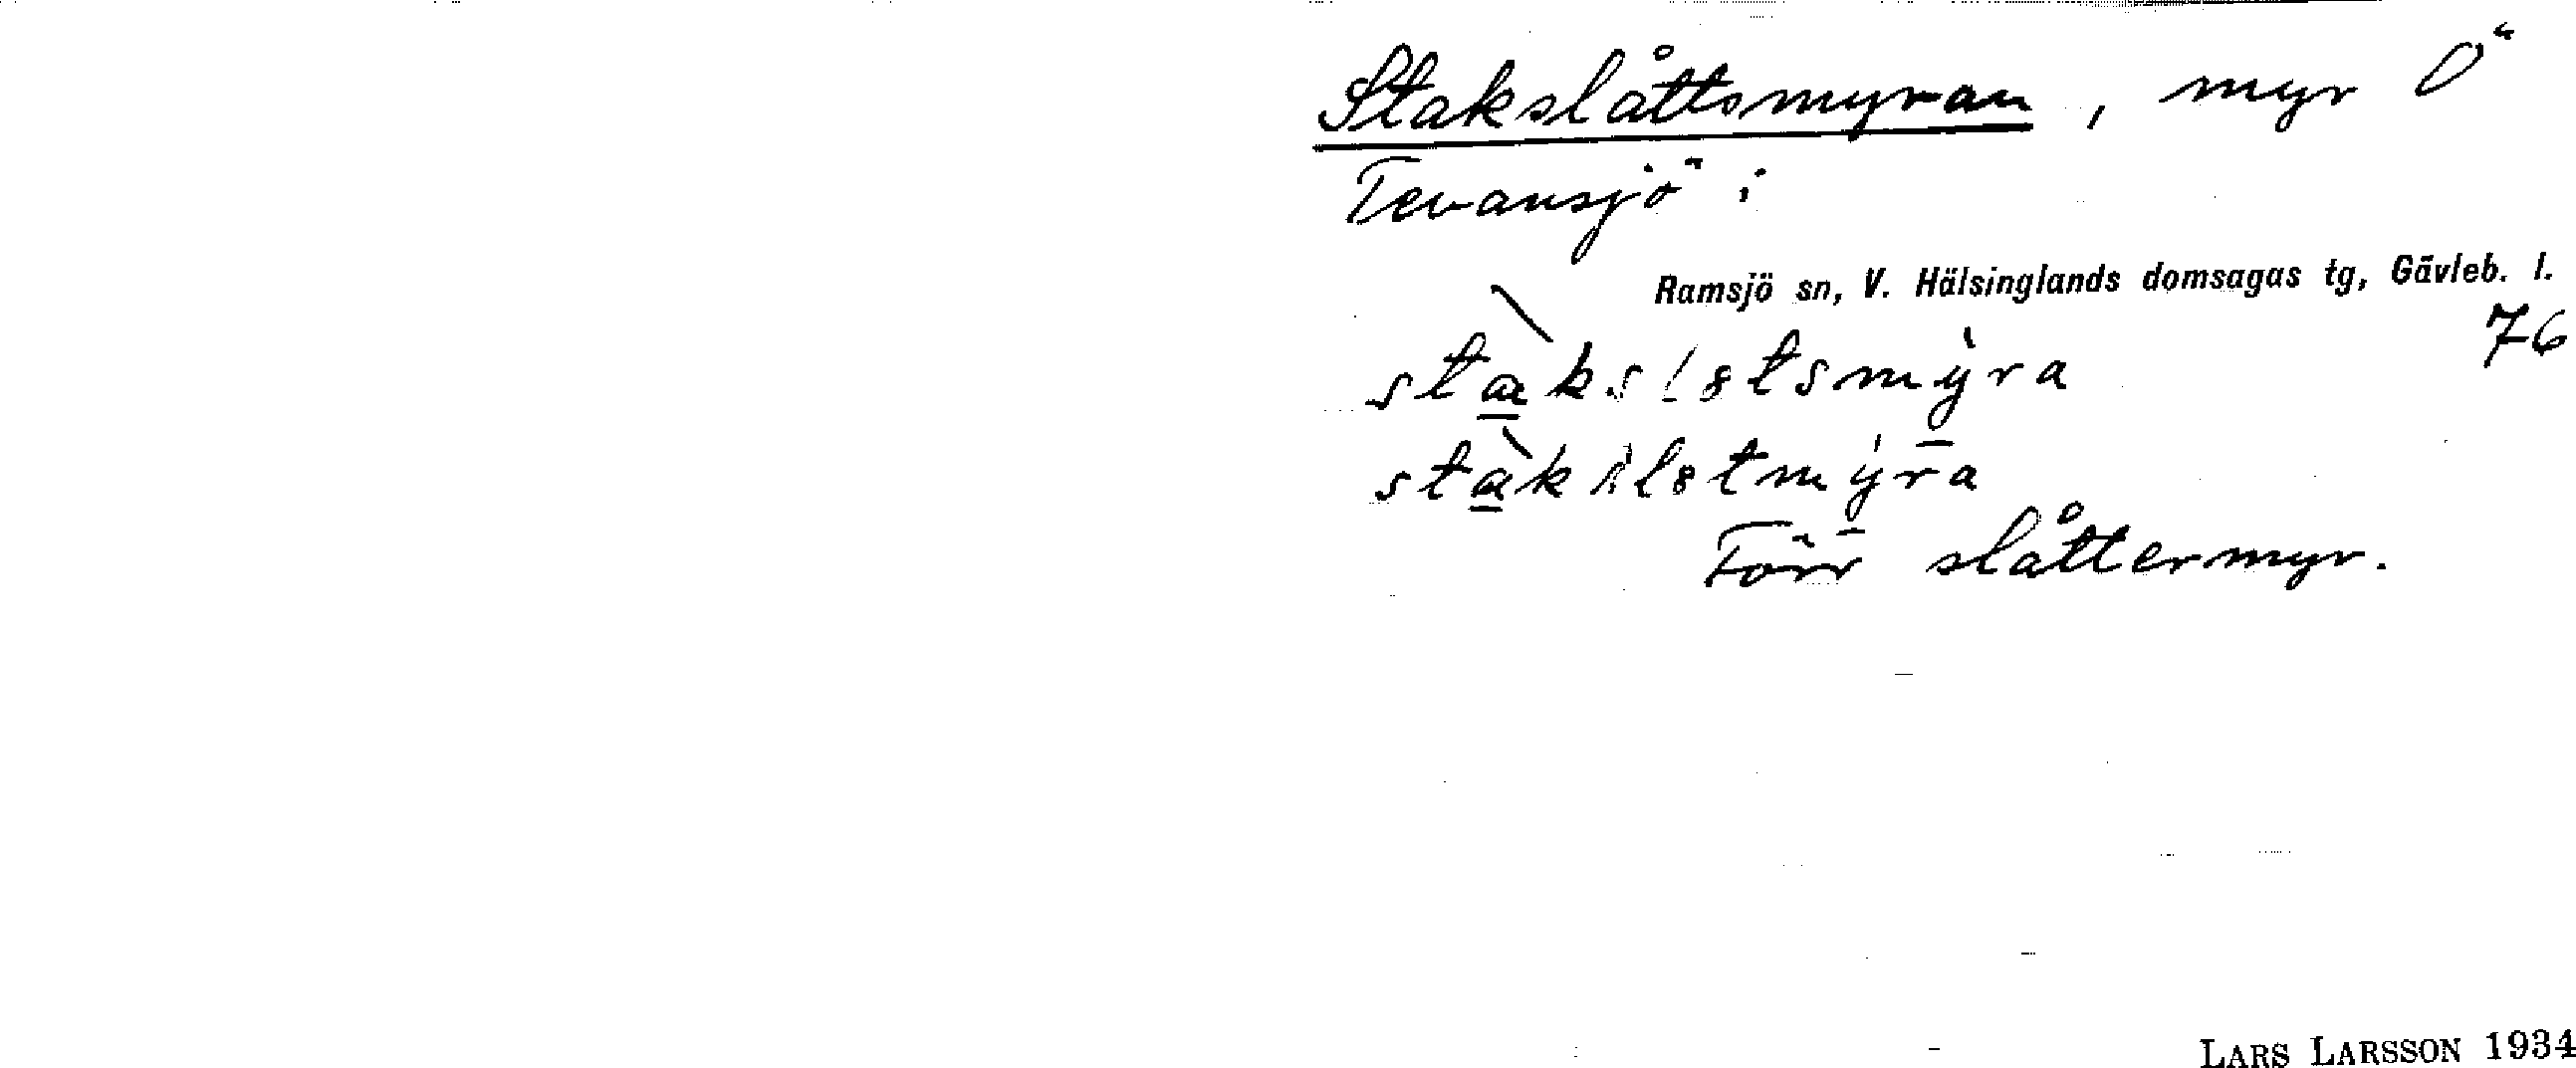 Stakslåttsmyran, myr Ö
Tevansjö i
Ramsjö sn, V. Hälsinglands domsagas tg, Gävleb. l.
76
Förr slåttermyr.
LARS LARSSON 1934